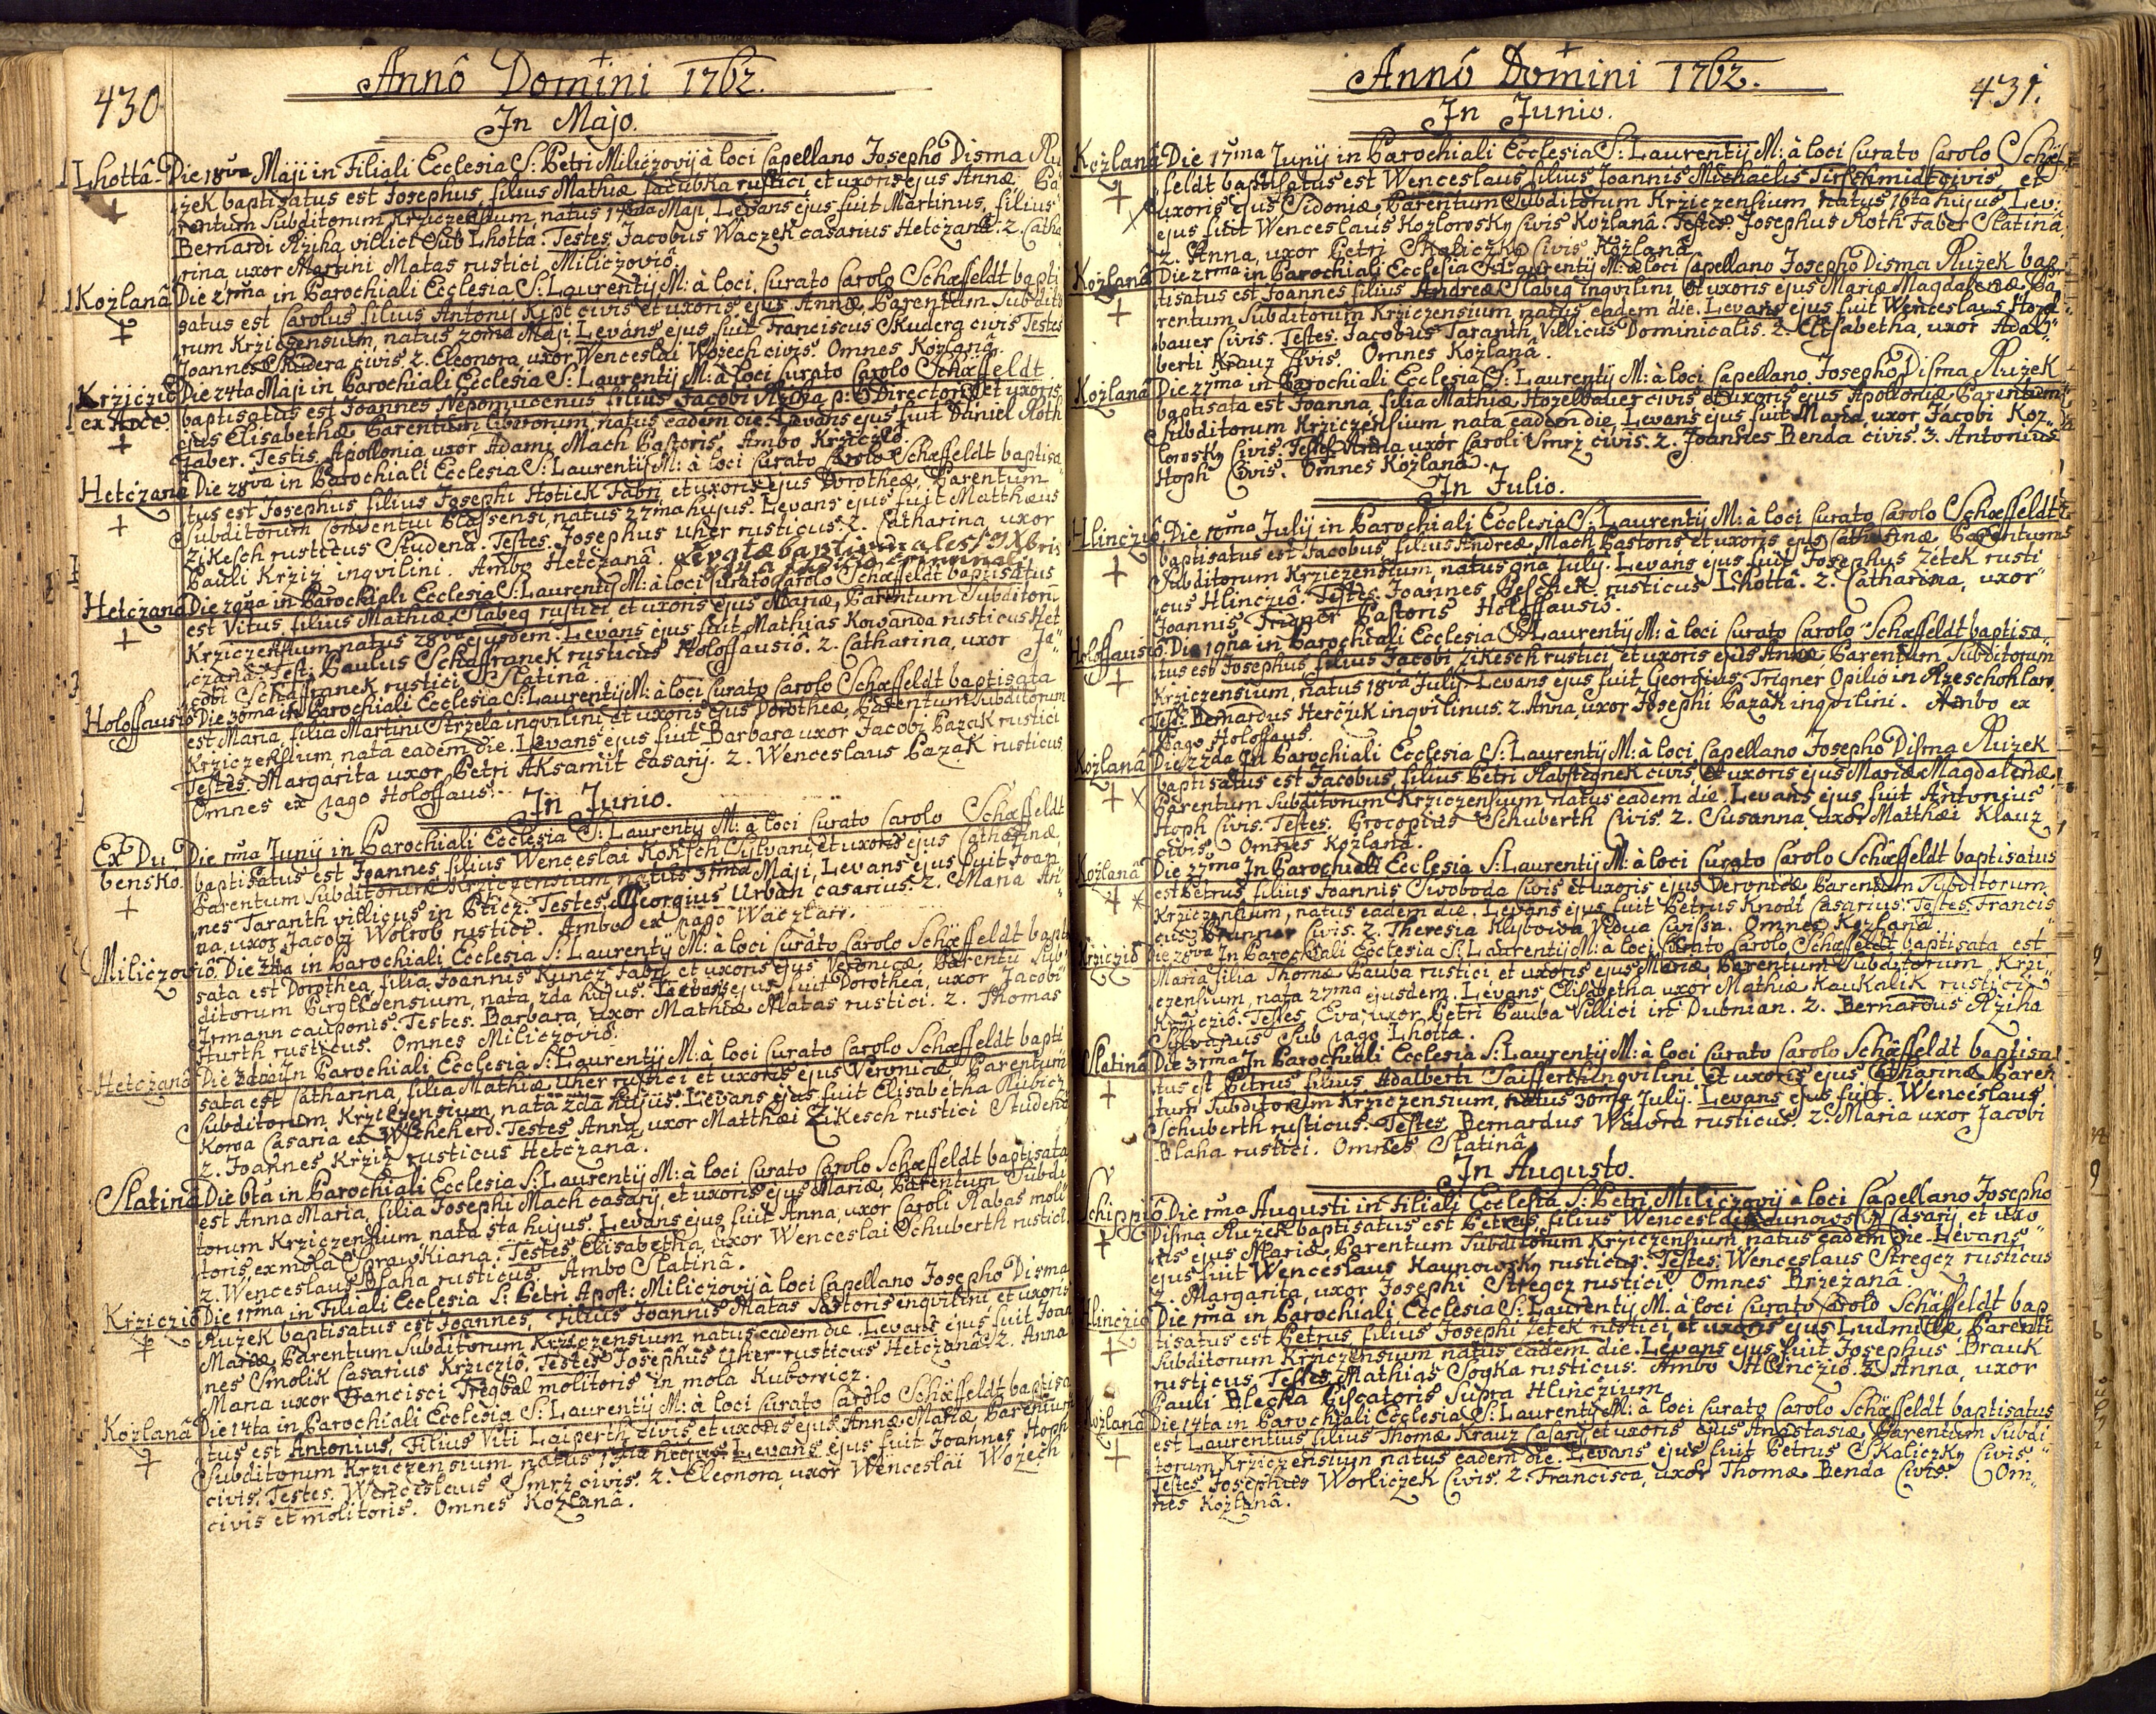 430
Annô Domini 1762.
In Majo.
Lhottâ. Die 18va Maji in Filiali Ecclesia S: Petri Miliczovij à loci Capellano Josepho Disma Ru
zek baptisatus est Josephus, filius Mathiæ Jacubka rustici et uxoris ejus Annæ. Pa
rentum Subditorum Krziczensium, natus 17ma Maji, Levans ejus fuit Martinus, filius
Bernardi Rziha villici Sub Lhotta. Testes. Jacobus Waczek casarius Hetczanâ. 2. Catha
rina, uxor Martini Matas rustici Miliczoviô.
Kozlanâ Die 21ma in Parochiali Ecclesia S: Laurentij M: à loci Curato Carolo Schæffeldt bapti
satus est Carolus filius Antonij Kipt civis et uxoris ejus Annæ, Parentum Subdito
rum Krziczensium, natus 20ma Maji. Levans ejus fuit Franciscus Skudera civis Testes
Joannes Skudera civis. 2. Eleonora, uxor Wenceslai Wozech civis. Omnes Kozlanâ.
Krziczio Die 24ta Maji in Parochiali Ecclesia S: Laurentij M: à loci Curato Carolo Schæffeldt
ex Arce baptisatus est Joannes Nepomucenus filius Jacobi Rziha p: t: Directoris et uxoris
ejus Elisabethæ Parentum liberorum, natus eadem die. Levans ejus fuit Daniel Roth
Faber. Testis, Apollonia uxor Adami Mach Pastoris. Ambo Krziczio.
Hetczanâ Die 28va in Parochiali Ecclesia S: Laurentij M: à loci Curato Carolo Schæffeldt baptisa
tus est Josephus filius Josephi Hotiek Fabri et uxoris ejus Dorotheæ, Parentum
Subditorum Conventui Plassensi, natus 27ma hujus. Levans ejus fuit Matthæus
Zikesch rusticus Studenâ. Testes. Josephus Uher rusticus. 2. Catharina, uxor
Pauli Krziz inqvilini. Ambo Hetczanâ.
Hetczanâ Die 29na in Parochiali Ecclesia S: Laurentij M: à loci Curato Carolo Schæffeldt baptisatus
est Vitus filius Mathiæ Slabeg rustici et uxoris ejus Mariæ, Parentum Subditorū
Krziczensium, natus 28va ejusdem. Levans ejus fuit Mathias Kowanda rusticus Het
czanâ. Test: Paulus Schaffranek rusticus Holoffausiô. 2. Catharina, uxor Ja
cobi Schaffranek rustici Slatinâ.
Holoffausiô Die 30ma in Parochiali Ecclesia S: Laurentij M: à loci Curato Carolo Schæffeldt baptisata
est Maria, filia Martini Strzela inqvilini et uxoris ejus Dorotheæ, Parentum Subditorum
Krziczensium, nata eadem die. Levans ejus fuit Barbara uxor Jacobi Pazak rustici
Testes. Margarita uxor Petri Aksamit casarij. 2. Wenceslaus Pazak rusticus
Omnes ex pago Holoffaus.
In Junio.
Ex Du Die 1ma Junij in Parochiali Ecclesia S: Laurentij M: à loci Curato Carolo Schæffeldt
bensko. baptisatus est Joannes, filius Wenceslai Koksch Sylvani et uxoris ejus Catharinæ,
Parentum Subditorum Krziczensium natus 31ma Maji, Levans ejus fuit Joan
nes Taranth villicus in Pticz. Testes. Georgius Urban casarius. 2. Maria An
na, uxor Jacobi Wolrob rustici. Ambo ex pago Waczlaw.
Miliczoviô. Die 2da in Parochiali Ecclesia S: Laurentij M: à loci Curato Carolo Schæffeldt bapti
sata est Dorothea, filia Joannis Kuncz Fabri et uxoris ejus Veronicæ, Parentū Sub
ditorum Pirglicensium, nata, 2da hujus. Levans ejus fuit Dorothea, uxor Jacobi
Irmann cauponis. Testes. Barbara, uxor Mathiæ Matas rustici. 2. Thomas
Hurth rusticus. Omnes Miliczoviô.
Hetczanâ Die 3tia in Parochiali Ecclesia S: Laurentij M: à loci Curato Carolo Schæffeldt bapti
sata est Catharina, filia Mathiæ Uher rustici et uxoris ejus Veronicæ, Parentum
Subditorum Krziczensium, nata 2da hujus. Levans ejus fuit Elisabetha Kubicz
Kowa Casaria ex Wscheherd. Testes Anna, uxor Matthæi Zikesch rustici Studenâ
2. Joannes Krziz rusticus Hetczanâ.
Slatinâ Die 6ta in Parochiali Ecclesia S: Laurentij M: à loci Curato Carolo Schæffeldt baptisata
est Anna Maria, filia Josephi Mach casarij, et uxoris ejus Mariæ, Parentum Subdi
torum Krziczensium nata 5ta hujus. Levans ejus fuit Anna, uxor Caroli Rabas moli
toris ex mola Sprawkiana. Testes, Elisabetha, uxor Wenceslai Schuberth rustici.
2. Wenceslaus Blaha rusticus. Ambo Slatinâ.
Krziczio Die 11ma in Filiali Ecclesia S: Petri Apost: Miliczovij à loci Capellano Josepho Disma
Ruzek baptisatus est Joannes, Filius Joannis Matas Sartoris inqvilini et uxoris
Mariæ, Parentum Subditorum Krziczensium natus eadem die. Levans ejus fuit Joan
nes Smolik Casarius Krziczio. Testes Josephus Uher rusticus Hetczanâ 2. Anna
Maria uxor Francisci Tregbal molitoris in mola Kubowicz.
Kozlanâ Die 14ta in Parochiali Ecclesia S: Laurentij M: à loci Curato Carolo Schæffeldt baptisa
tus est Antonius, Filius Viti Laiperth civis et uxoris ejus Annæ Mariæ Parentum
Subditorum Krziczensium natus 13tia hujus Levans ejus fuit Joannes Hoph
civis. Testes. Wenceslaus Smrz civis. 2. Eleonora, uxor Wenceslai Wozech
civis et molitoris. Omnes Kozlanâ.
431.
Annô Domini 1762.
In Junio.
Kozlanâ Die 17ma Junij in Parochiali Ecclesia S: Laurentij M: à loci Curato Carolo Schæf
feldt baptisatus est Wenceslaus filius Joannis Michaelis Tirschmidt civis, et
uxoris ejus Sidoniæ, Parentum Subditorum Krziczensium, natus 16ta hujus, Lev:
ejus fuit Wenceslaus Kozlorosky Civis Kozlanâ. Testes. Josephus Roth Faber Slatinâ
2. Anna, uxor Petri Skaliczky Civis Kozlanâ.
Kozlanâ Die 21ma in Parochiali Ecclesia S: Laurentij M: à loci Capellano Josepho Disma Ruzek bap
tisatus est Joannes filius Andreæ Slabeg inqvilini et uxoris ejus Mariæ Magdalenæ Pa
rentum Subditorum Krziczensium natus eadem die. Levans ejus fuit Wenceslaus Hozl
bauer Civis. Testes. Jacobus Taranth, Villicus Dominicalis. 2. Elisabetha, uxor Adal
berti Krauz Civis. Omnes Kozlanâ.
Kozlanâ Die 27ma in Parochiali Ecclesia S: Laurentij M: à loci Capellano Josepho Disma Ruzek
baptisata est Joanna, filia Mathiæ Hozelbauer civis et uxoris ejus Apolloniæ Parentum
Subditorum Krziczensium, nata eadem die, Levans ejus fuit Maria, uxor Jacobi Koz
lorosky Civis. Testes Anna, uxor Caroli Smrz civis. 2. Joannes Benda civis. 3. Antonius
Hoph Civis. Omnes Kozlanâ.
In Julio.
Hlinczio Die 10ma Julij in Parochiali Ecclesia S: Laurentij M: à loci Curato Carolo Schæffeldt
baptisatus est Jacobus, filius Andreæ Mach Pastoris et uxoris ejus Catharinæ Parentum
Subditorum Krziczensium, natus 9na July. Levans ejus fuit Josephus Zetek rusti
cus Hlinczio. Testes. Joannes Peschek rusticus Lhottâ. 2. Catharina, uxor
Joannis Trigner Pastoris Holoffausiô.
Holoffausiô. Die 19na in Parochiali Ecclesia S: Laurentij M: à loci Curato Carolo Schæffeldt baptisa
tus est Josephus filius Jacobi Zikesch rustici et uxoris ejus Annæ Parentum Subditorum
Krziczensium, natus 18va July. Levans ejus fuit Georgius Trigner Opilio in Rzeschohlaw
Test: Bernardus Herczik inqvilinus. 2. Anna, uxor Josephi Pazak inqvilini. Ambo ex
Pago Holoffaus.
Kozlanâ Die 22da In Parochiali Ecclesia S: Laurentij M: à loci Capellano Josepho Disma Ruzek
baptisatus est Jacobus, filius Petri Rabstegnek civis, et uxoris ejus Mariæ Magdalenæ
Parentum Subditorum Krziczensium natus eadem die. Levans ejus fuit Antonius
Hoph Civis. Testes. Procopius Schuberth Civis. 2. Susanna, uxor Matthæi Klauz
civis. Omnes Kozlanâ.
Kozlanâ Die 27ma In Parochiali Ecclesia S: Laurentij M: à loci Curato Carolo Schæffeldt baptisatus
est Petrus filius Joannis Swoboda Civis et uxoris ejus Veronicæ Parentum Subditorum
Krziczensium, natus eadem die. Levans ejus fuit Petrus Knodl Casarius. Testes. Francis
cus Brunner Civis. 2. Theresia Klybowa Vidua Civissa. Omnes Kozlanâ
Krziczio Die 28va In Parochiali Ecclesia S: Laurentij M: à loci Curato Carolo Schæffeldt baptisata est
Maria filia Thomæ Bauba rustici et uxoris ejus Mariæ, Parentum Subditorum Krzi
czensium, nata 27ma ejusdem. Levans, Elisabetha uxor Mathiæ Kaukalik rustici
Krziczio. Testes. Eva, uxor Petri Bauba Villici in Dubnian. 2. Bernardus Rziha
Sylvanus Sub pago Lhotta.
Slatinâ Die 31ma In Parochiali Ecclesia S: Laurentij M: à loci Curato Carolo Schæffeldt baptisa
tus est Petrus filius Adalberti Saifferth inqvilini et uxoris ejus Catharinæ Paren
tum Subditorum Krziczensium, natus 30ma July. Levans ejus fuit. Wenceslaus
Schuberth rusticus. Testes. Bernardus Wawra rusticus. 2. Maria uxor Jacobi
Blaha rustici. Omnes Slatinâ.
In Augusto.
Die 1ma Augusti in Filiali Ecclesia S: Petri Miliczovij à loci Capellano Josepho
Disma Ruzek baptisatus est Petrus, filius Wenceslai Kaunowsky Casarij et uxo
ris ejus Mariæ, Parentum Subditorum Krziczensium natus eadem die. Levans
ejus fuit Wenceslaus Kaunowsky rusticus. Testes. Wenceslaus Stregcz rusticus
2. Margarita, uxor Josephi Stregcz rustici. Omnes Brzezanâ.
Hlinczio Die 11ma in Parochiali Ecclesia S: Laurentij M: à loci Curato Carolo Schæffeldt bap
tisatus est Petrus filius Josephi Zetek rustici, et uxoris ejus Ludmillæ, Parentū
Subditorum Krziczensium natus eadem die. Levans ejus fuit Josephus Brauk
rusticus. Testes, Mathias Sogka rusticus. Ambo Hlinczio. 2. Anna, uxor
Pauli Blecha Piscatoris Supra Hlinczium.
Kozlanâ Die 14ta in Parochiali Ecclesia S: Laurentij M: à loci Curato Carolo Schæffeldt baptisatus
est Laurentius filius Thomæ Krauz Casarij et uxoris ejus Anastasiæ Parentum Subdi
torum Krziczensium natus eadem die. Levans ejus fuit Petrus Skaliczky Civis.
Testes Josephus Worliczek Civis. 2. Francisca, uxor Thomæ Benda Civis. Om
nes Kozlanâ.